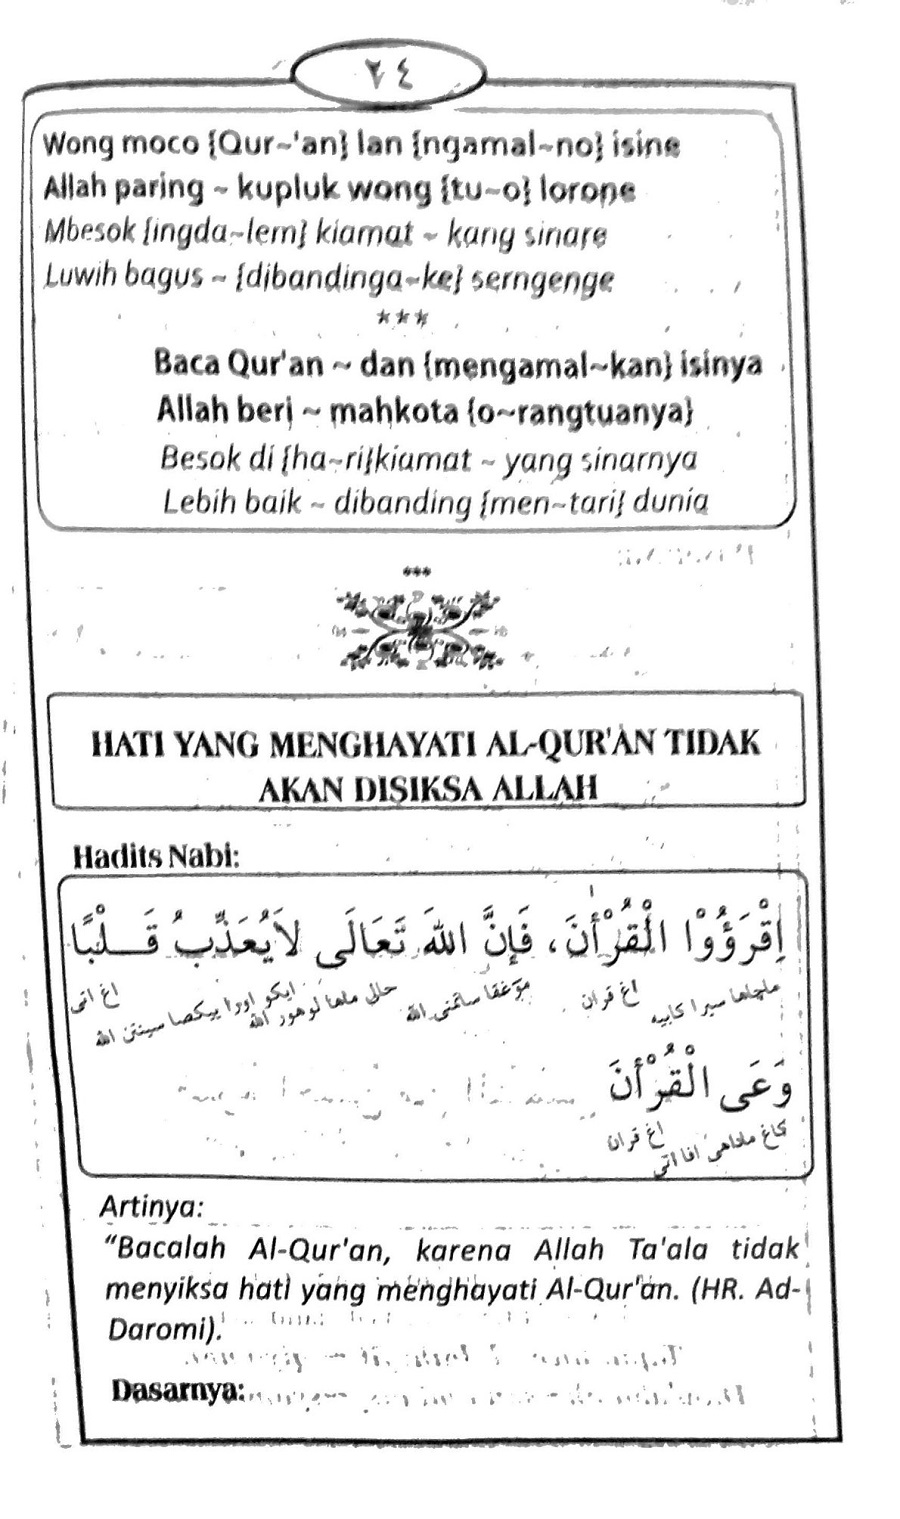 ٢٤
Wong moco {Qur~'an} lan {ngamal~no} isine
Allah paring ~ kupluk wong {tu~o} lorone
Mbesok {ingda~lem} kiamat ~ kang sinare
Luwih bagus ~ {dibandinga~ke} serngenge
***
Baca Qur'an ~ dan {mengamal~kan} isinya
Allah beri ~ mahkota {o~rangtuanya}
Besok di {ha~ri}kiamat ~ yang sinarnya
Lebih baik ~ dibanding {men~tari} dunia
***
HATI YANG MENGHAYATI AL-QUR'AN TIDAK
AKAN DISIKSA ALLAH
Hadits Nabi:
اِقْرَؤُوْا الْقُرْأٰنَ، فَإِنَّ اللهَ تَعَالَى لاَيُعَذِّبُ قَــلْبًا
وَعَى الْقُرْأٰنَ
اغ قران
Artinya:
“Bacalah Al-Qur'an, karena Allah Ta'ala tidak
menyiksa hati yang menghayati Al-Qur'an. (HR. Ad-
Daromi).
Dasarnya: